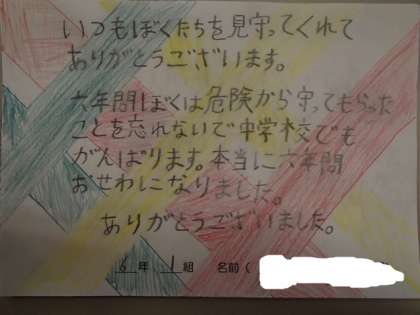 いつもぼくたちを見守ってくれて
ありがとうございます。
六年間ぼくは危険から守ってもらった
ことを忘れないで中学校でも
がんばります。本当に六年間
おせわになりました。
ありがとうございました。
6年 1組 名前(